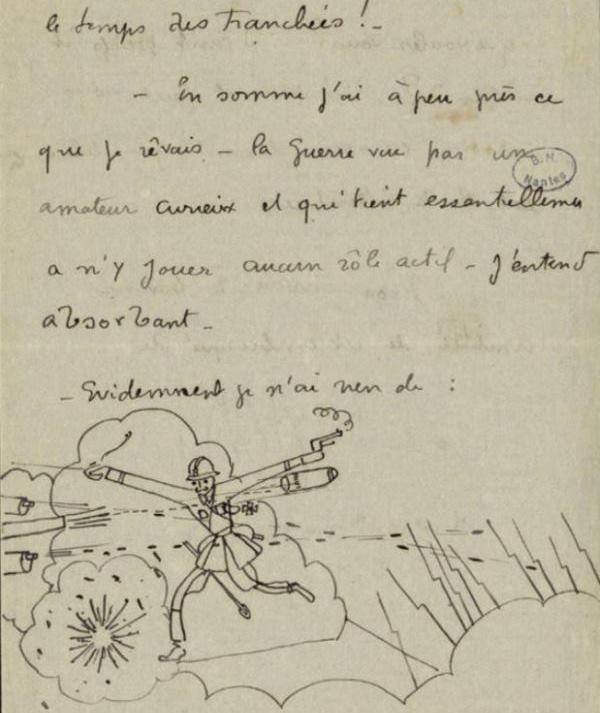 le temps des tranchées ! _
- En somme j'ai à peu près ce
que je rêvais - la Guerre vue par un
B.M.
Nantes
amateur curieux et qui tient essentielleme
a n'y jouer aucun rôle actif - J'entend
absorbant _
- Evidemment je n'ai rien de :